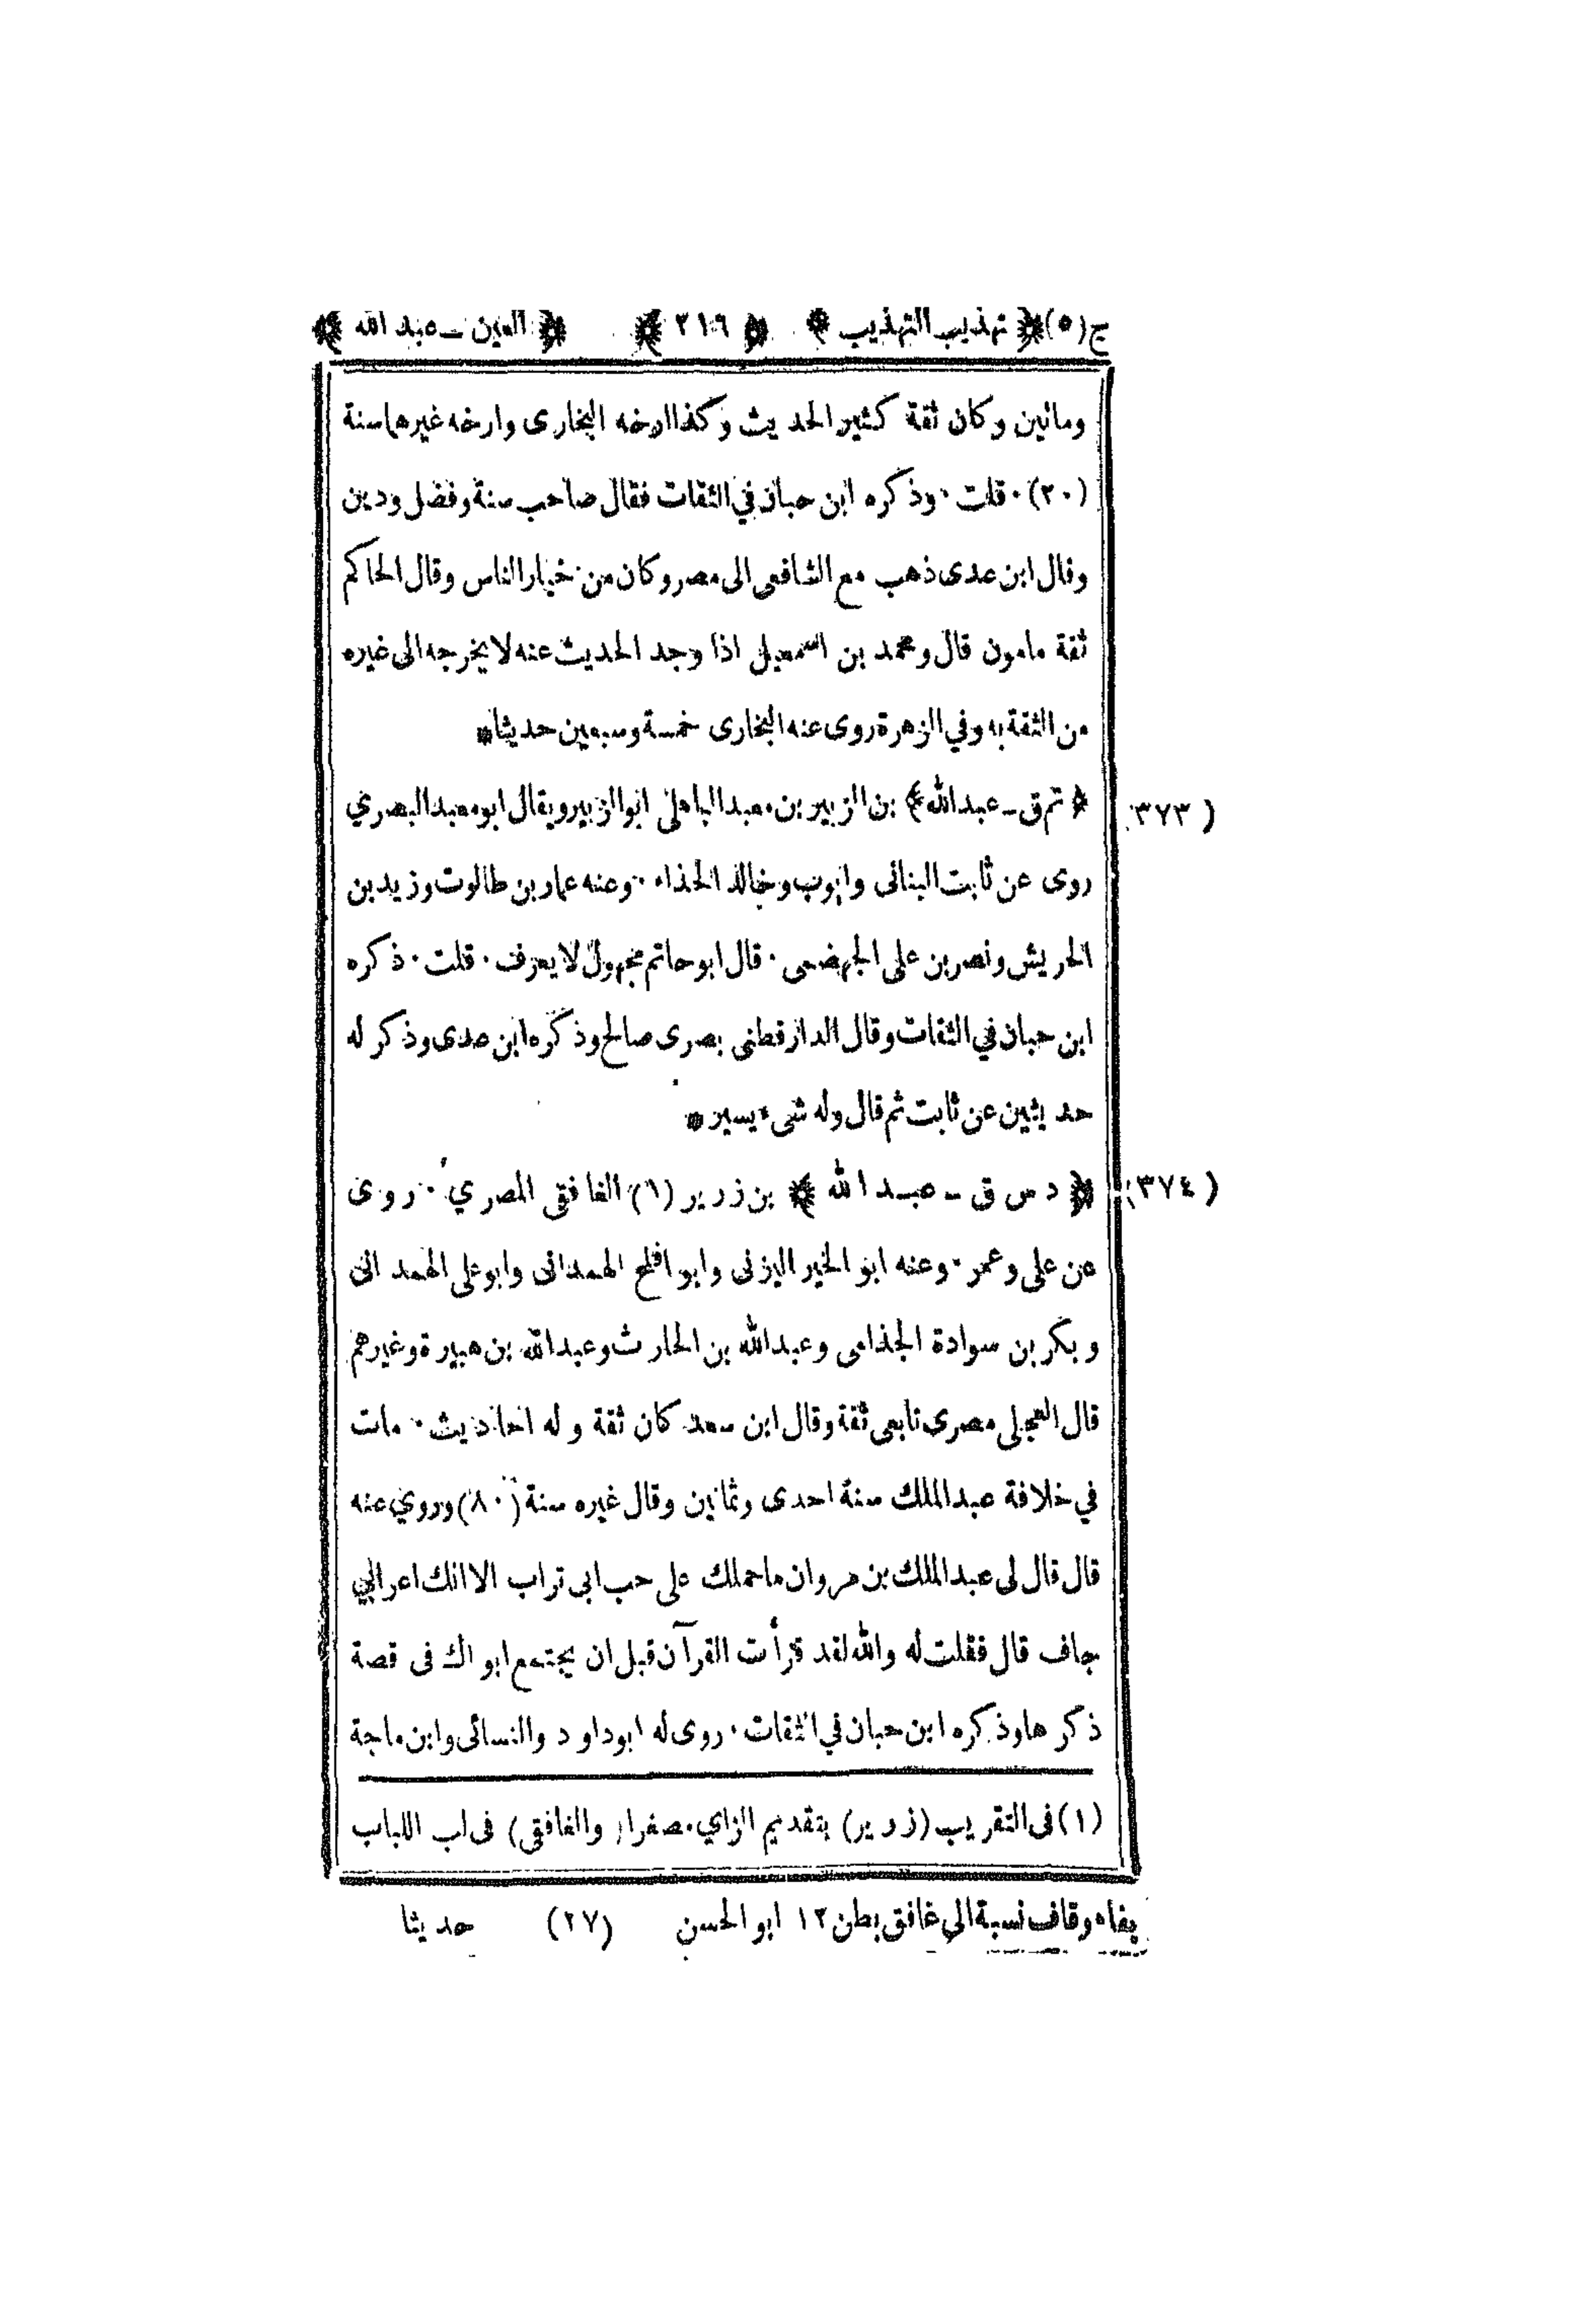 ج(٥) ﴿ تهذيب التهذيب ﴾ ﴿ ٢١٦ ﴾ ﴿ العين ـ عبد الله ﴾
ومائتين وكان ثقة كثير الحديث وكذا ارخه البخارى وارخه غيرهما سنة
(٢٠) ٠ قلت ٠ وذكره ابن حبان في الثقات فقال صاحب سنة وفضل ودين
وقال ابن عدى ذهب مع الشافعى الى مصر وكان من خيار الناس وقال الحاكم
ثقة مامون قال ومحمد بن اسمعيل اذا وجد الحديث عنه لا يخرجه الى غيره
من الثقة به وفي الزهرة روى عنه البخارى خمسة وسبعين حديثا *
﴿ تم ق ـ عبد الله ﴾ بن الزبير بن معبد الباهلى ابو الزبير ويقال ابو معبد البصري
(٣٧٣)
روى عن ثابت البنانى وايوب وخالد الحذاء ٠ وعنه عمار بن طالوت وزيد بن
الحريش ونصر بن على الجهضمى ٠ قال ابو حاتم مجهول لا يعرف ٠ قلت ٠ ذكره
ابن حبان في الثقات وقال الدارقطنى بصرى صالح وذكره ابن عدى وذكر له
حديثين عن ثابت ثم قال وله شىء يسير *
﴿ د س ق ـ عبد الله ﴾ بن زرير (١) الغافقى المصري ٠ روى
(٣٧٤)
عن على وعمر ٠ وعنه ابو الخير اليزنى وابو افلح الهمدانى وابو على الهمدانى
وبكر بن سوادة الجذامى وعبد الله بن الحارث وعبد الله بن هبيرة وغيرهم
قال العجلى مصرى تابعى ثقة وقال ابن سعد كان ثقة وله احاديث ٠ مات
في خلافة عبد الملك سنة احدى وثمانين وقال غيره سنة (٨٠) وروي عنه
قال قال لى عبد الملك بن مروان ما حملك على حب ابى تراب الا انك اعرابي
جاف قال فقلت له والله لقد قرأت القرآن قبل ان يجتمع ابواك فى قصة
ذكرها وذكره ابن حبان في الثقات ٠ روى له ابو داود والنسائى وابن ماجة
(١) فى التقريب (زرير) بتقديم الزاي مصغرا (والغافقى) فى لب اللباب
بفاء وقاف نسبة الي غافق بطن ١٢ ابو الحسن (٢٧) حديثا